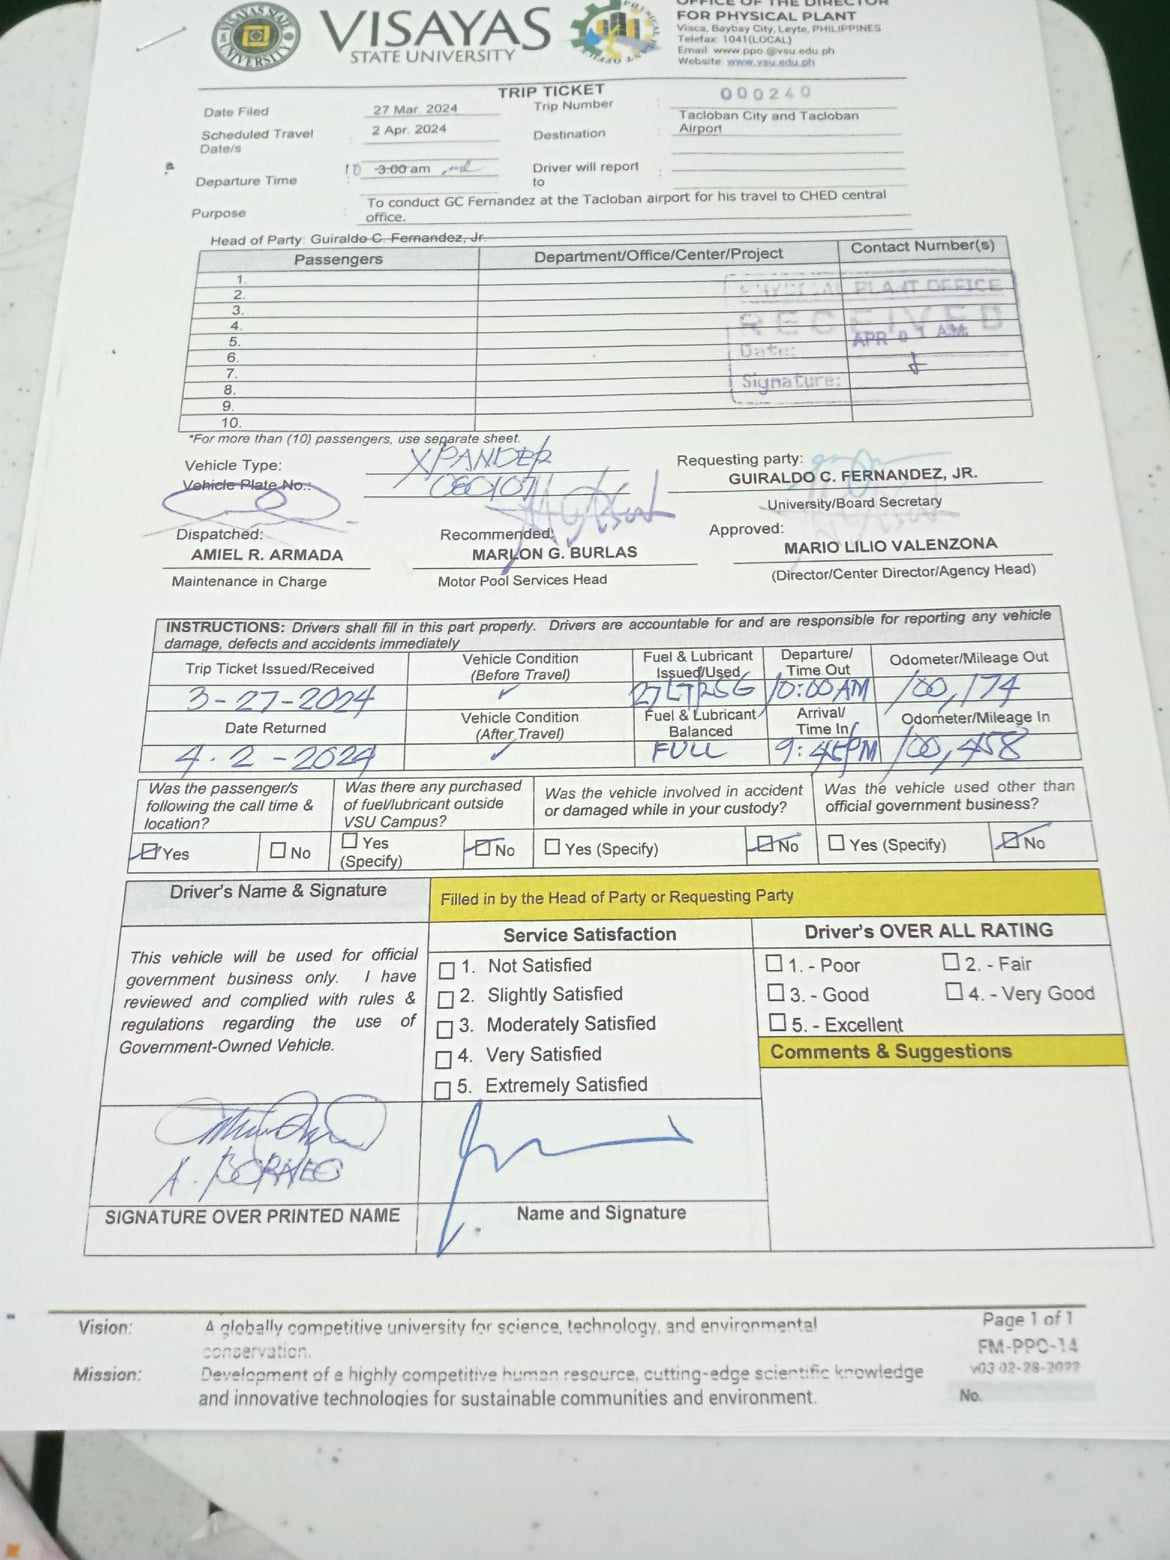 VISAYAS
STATE UNIVERSITY
VISAYAS STATE
UNIVERSITY
OFFICE OF THE DIRECTOR
FOR PHYSICAL PLANT
Visca, Baybay City, Leyte, PHILIPPINES
Telefax: 1041(LOCAL)
Email: www.ppo.@vsu.edu.ph
Website: www.vsu.edu.ph
TRIP TICKET
Date Filed : 27 Mar. 2024 Trip Number : 000240
Scheduled Travel Date/s : 2 Apr. 2024 Destination : Tacloban City and Tacloban Airport
Departure Time : 10 3:00 am Driver will report to :
Purpose : To conduct GC Fernandez at the Tacloban airport for his travel to CHED central
office.
Head of Party: Guiraldo C. Fernandez, Jr.
Passengers Department/Office/Center/Project Contact Number(s)
1.
2.
3.
4.
5.
6.
7.
8.
9.
10.
PHYSICAL PLANT OFFICE
RECEIVED
Date: APR 01 AM
Signature:
*For more than (10) passengers, use separate sheet.
Vehicle Type: XPANDER
Vehicle Plate No.: 080107
Requesting party:
GUIRALDO C. FERNANDEZ, JR.
University/Board Secretary
Dispatched: Recommended: Approved:
AMIEL R. ARMADA MARLON G. BURLAS MARIO LILIO VALENZONA
Maintenance in Charge Motor Pool Services Head (Director/Center Director/Agency Head)
INSTRUCTIONS: Drivers shall fill in this part properly. Drivers are accountable for and are responsible for reporting any vehicle
damage, defects and accidents immediately
Trip Ticket Issued/Received Vehicle Condition (Before Travel) Fuel & Lubricant Issued/Used Departure/ Time Out Odometer/Mileage Out
3-27-2024 ✓ 10:00AM 100,174
Date Returned Vehicle Condition (After Travel) Fuel & Lubricant Balanced Arrival/ Time In Odometer/Mileage In
4.2-2024 ✓ FULL 9:45PM 100,458
Was the passenger/s following the call time & location? Was there any purchased of fuel/lubricant outside VSU Campus? Was the vehicle involved in accident or damaged while in your custody? Was the vehicle used other than official government business?
☑ Yes ☐ No ☐ Yes (Specify) ☑ No ☐ Yes (Specify) ☑ No ☐ Yes (Specify) ☑ No
Driver's Name & Signature Filled in by the Head of Party or Requesting Party
Service Satisfaction Driver's OVER ALL RATING
This vehicle will be used for official
government business only. I have
reviewed and complied with rules &
regulations regarding the use of
Government-Owned Vehicle.
☐ 1. Not Satisfied
☐ 2. Slightly Satisfied
☐ 3. Moderately Satisfied
☐ 4. Very Satisfied
☐ 5. Extremely Satisfied
☐ 1. - Poor ☐ 2. - Fair
☐ 3. - Good ☐ 4. - Very Good
☐ 5. - Excellent
Comments & Suggestions
A. BORNEO
SIGNATURE OVER PRINTED NAME Name and Signature
Vision: A globally competitive university for science, technology, and environmental
conservation.
Mission: Development of a highly competitive human resource, cutting-edge scientific knowledge
and innovative technologies for sustainable communities and environment.
Page 1 of 1
FM-PPO-14
v03 02-28-2022
No.